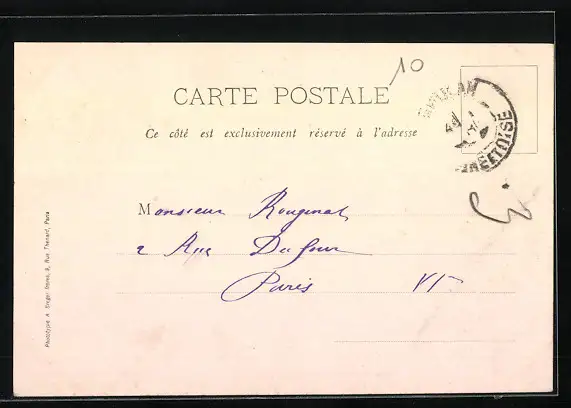 10
CARTE POSTALE
Ce côté est exclusivement réservé à l'adresse
3
Monsieur Rouginat
2 Rue Dufour
Paris VI
Phototype A. Breger frères, 9, Rue Thénard, Paris